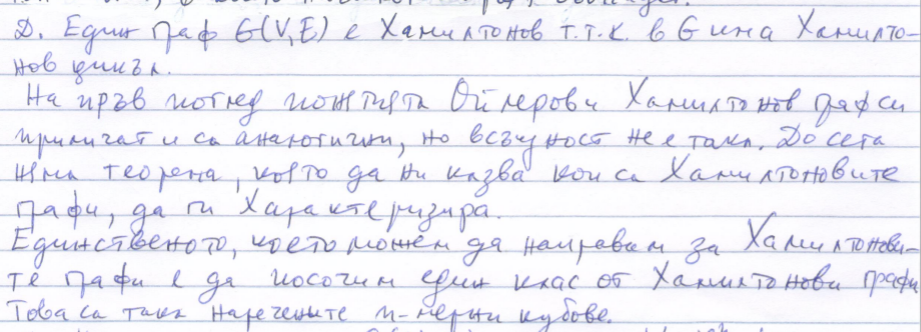 Д. Един граф G(V,E) е Хамилтонов т.т.к. в G има Хамилто-
нов цикъл.
На пръв поглед понятията Ойлеров и Хамилтонов граф си
приличат и са аналогични, но всъщност не е така. До сега
няма теорема, която да ни казва кои са Хамилтоновите
графи, да ги характеризира.
Единственото, което можем да направим за Хамилтонови-
те графи е да посочим един клас от Хамилтонови графи
Това са така наречените n-мерни кубове.